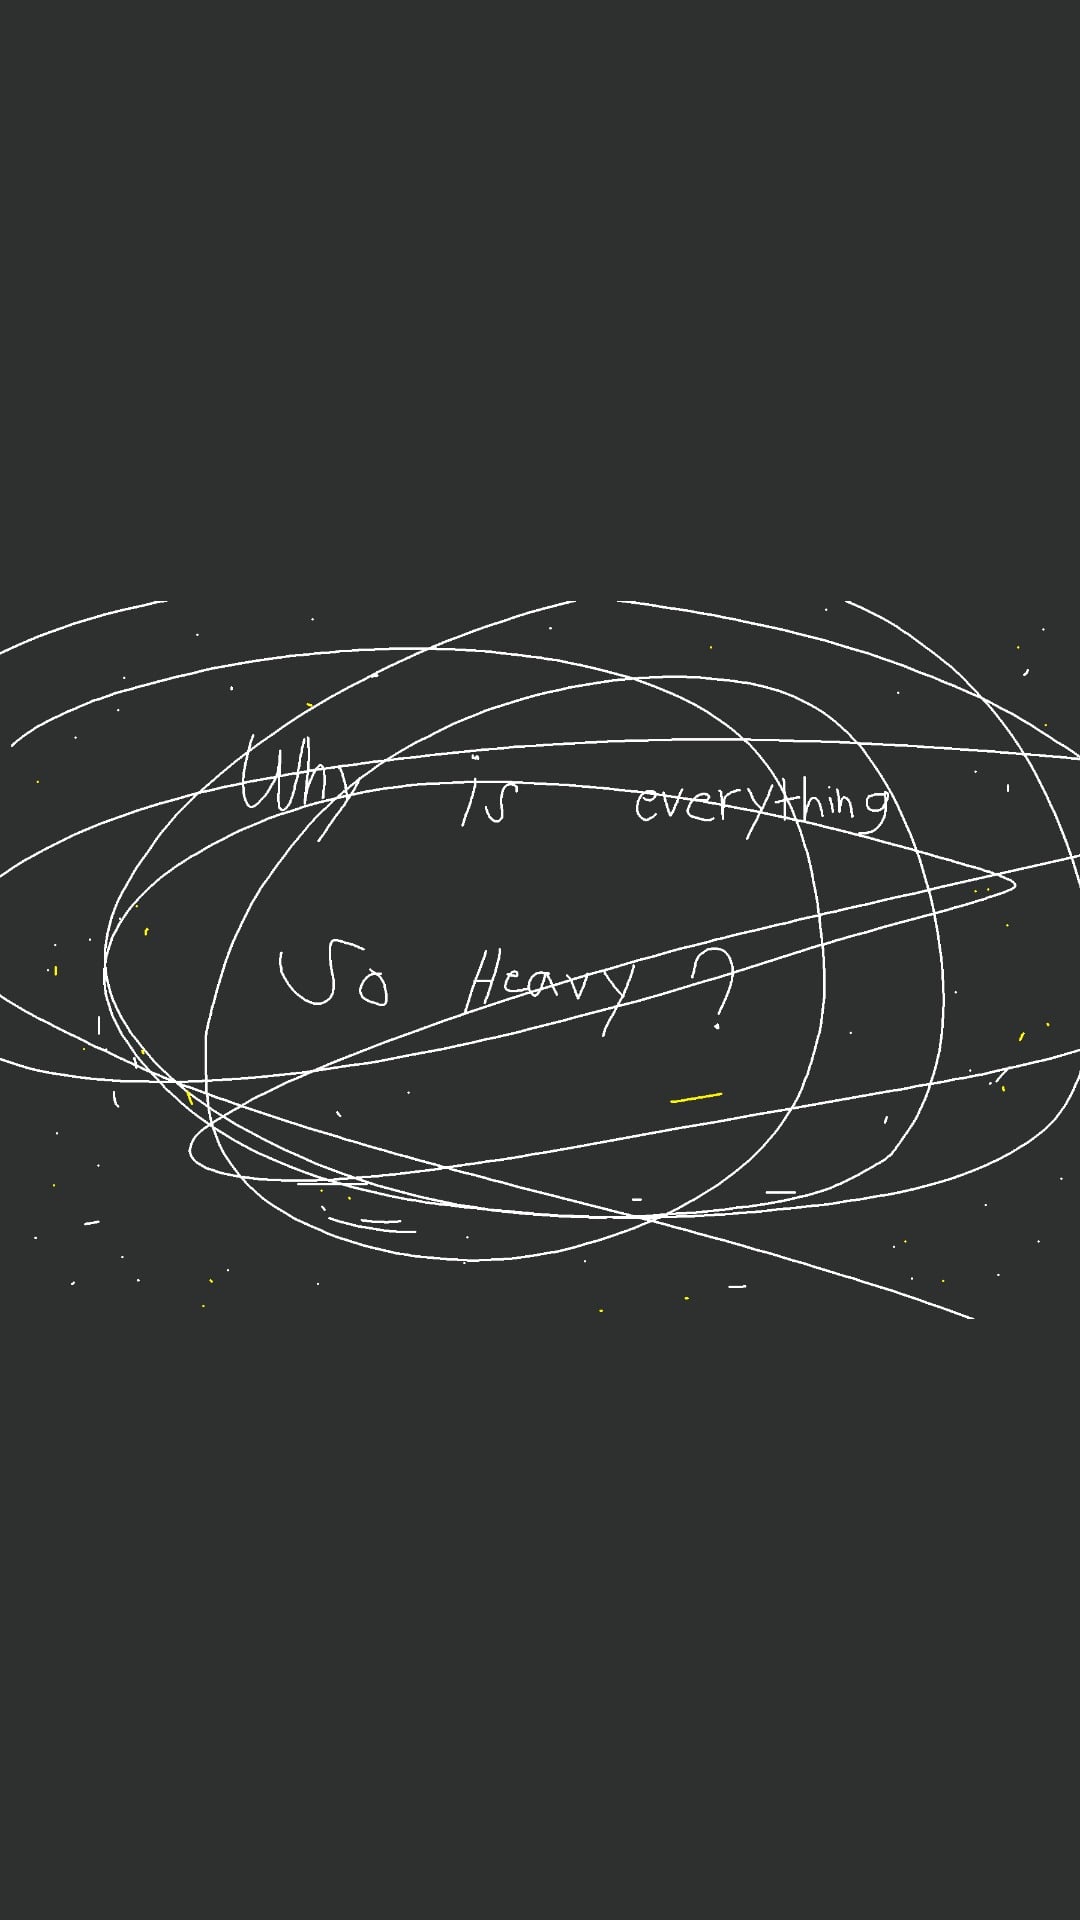 Why is everything
So Heavy ?